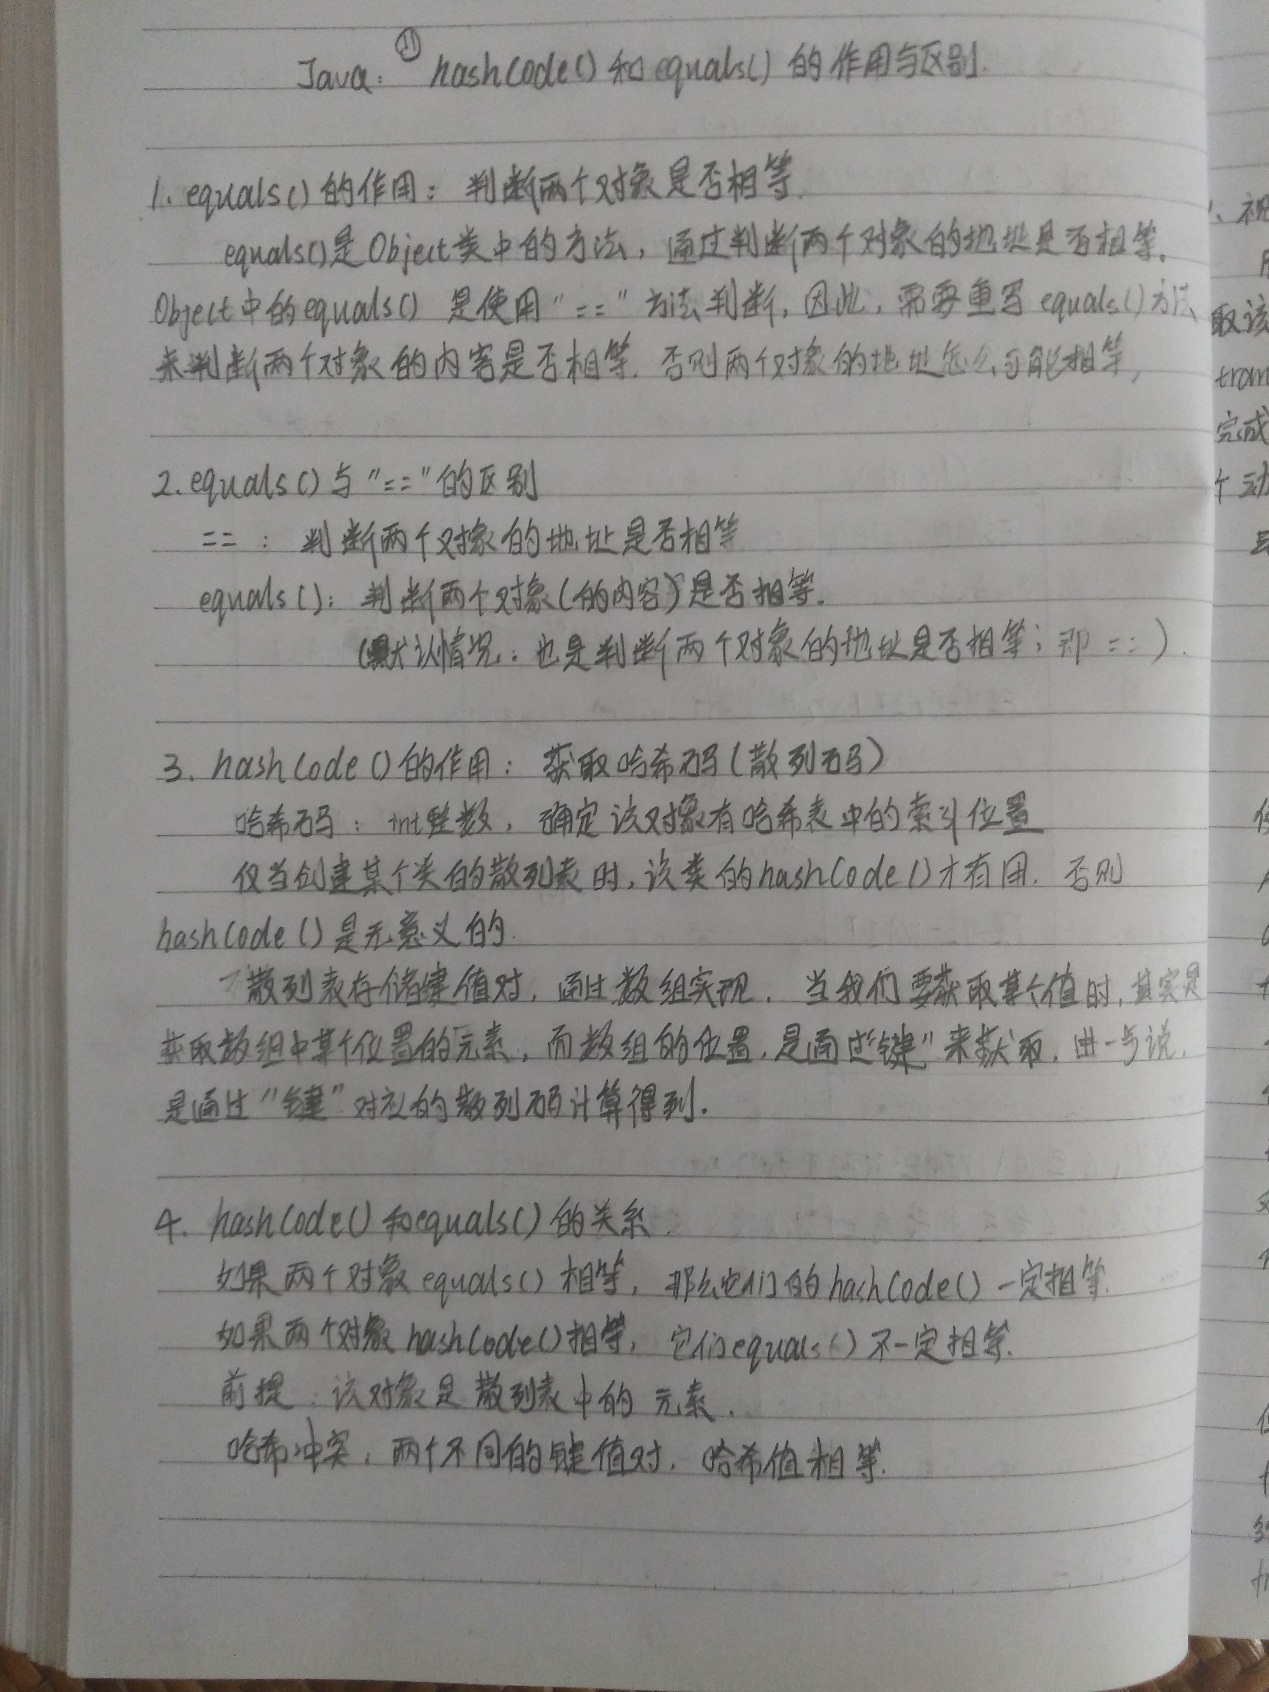 Java: ⑪ hashCode()和equals()的作用与区别.
1. equals()的作用: 判断两个对象是否相等.
equals()是Object类中的方法, 通过判断两个对象的地址是否相等.
Object中的equals() 是使用"=="方法判断, 因此, 需要重写equals()方法
来判断两个对象的内容是否相等. 否则两个对象的地址怎么可能相等,
2. equals()与"=="的区别
==: 判断两个对象的地址是否相等
equals(): 判断两个对象(的内容)是否相等.
(默认情况: 也是判断两个对象的地址是否相等; 即==).
3. hashCode()的作用: 获取哈希码(散列码)
哈希码: int整数, 确定该对象有哈希表中的索引位置
仅当创建某个类的散列表时, 该类的hashCode()才有用. 否则
hashCode()是无意义的.
散列表存储键值对, 通过数组实现. 当我们要获取某个值时, 其实是
获取数组中某个位置的元素, 而数组的位置, 是通过"键"来获取, 进一步说,
是通过"键"对应的散列码计算得到.
4. hashCode()和equals()的关系.
如果两个对象equals()相等, 那么它们的hashCode()一定相等.
如果两个对象hashCode()相等, 它们equals()不一定相等.
前提: 该对象是散列表中的元素.
哈希冲突: 两个不同的键值对, 哈希值相等.
取该
完成